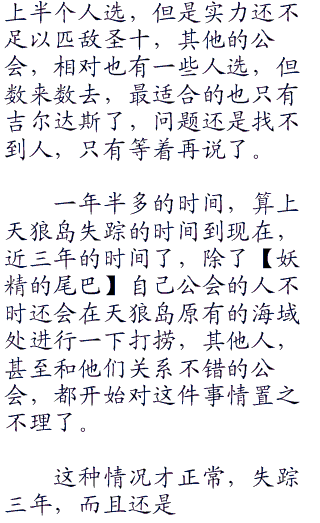 上半个人选，但是实力还不
足以匹敌圣十，其他的公
会，相对也有一些人选，但
数来数去，最适合的也只有
吉尔达斯了，问题还是找不
到人，只有等着再说了。
一年半多的时间，算上
天狼岛失踪的时间到现在，
近三年的时间了，除了【妖
精的尾巴】自己公会的人不
时还会在天狼岛原有的海域
处进行一下打捞，其他人，
甚至和他们关系不错的公
会，都开始对这件事情置之
不理了。
这种情况才正常，失踪
三年，而且还是